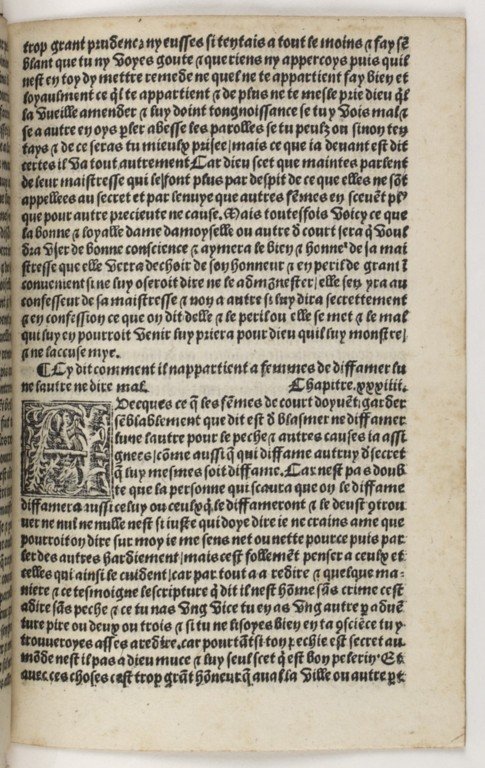 trop grant prudence ny eusses si ten tais a tout le moins ⁊ fay sē
blant que tu ny voyes goute ⁊ que riens ny appercoys puis quil
nest en toy dy mettre remede ne quel ne te appartient fay bien et
loyaulment ce q̄l te appartient ⁊ de plus ne te mesle prie dieu q̄l
la vueille amender ⁊ luy doint congnoissance se tu y vois mal ⁊
se a autre en oys p̲ler abesse les parolles se tu peulx ou sinon ten
tays ⁊ de ce seras tu mieulx prisee/mais ce que ia deuant est dit
certes il va tout autrement Car dieu scet que maintes parlent
de leur maistresse qui le font plus par despit de ce que elles ne sōt
appellees au secret et par lenuye que autres fēmes en sceuēt pl⁹
que pour autre precieute ne cause. Mais toutesfois voicy ce que
la bonne ⁊ loyalle dame damoyselle ou autre d̄ court sera q̄ voul
dra vser de bonne conscience ⁊ aymera le bien ⁊ honne᷑ de sa mai
stresse que elle verra dechoir de son honneur ⁊ en peril de grant ī
conuenient si ne luy oseroit dire ne le admōnester/elle sen yra au
confesseur de sa maistresse ⁊ non a autre si luy dira secrettement
⁊ en confession ce que on dit delle ⁊ le peril ou elle se met ⁊ le mal
qui luy en pourroit venir luy priera pour dieu quil luy monstre/
⁊ ne laccuse mye.
¶ Cy dit comment il nappartient a femmes de diffamer lu
ne lautre ne dire mal. Chapitre.xxxiiii.
AVecques ce q̄ les fēmes de court doyuēt garder
sēblablement que dit est d̄ blasmer ne diffamer
lune lautre pour le peche ⁊ autres causes ia assi
gnees cōme aussi q̄ qui diffame autruy d̄secret
q̄ luy mesmes soit diffame. Car nest pas doub
te que la personne qui scaura que on le diffame
diffamera aussi celuy ou ceulx q̄ le diffameront ⁊ le deust ꝯtrou
uer ne nul ne nulle nest si iuste qui doye dire ie ne crains ame que
pourroit on dire sur moy ie me sens net ou nette pource puis par
ler des autres hardiement/mais cest follemēt penser a ceulx et
celles qui ainsi le cuident/car par tout a a redire ⁊ quelque ma-
niere ⁊ ce tesmoigne lescripture q̄ dit il nest hōme sās crime cest
adire sās peche ⁊ ce tu nas vng vice tu en as vng autre p̲ aduē
ture pire ou deux ou trois ⁊ si tu ne lisoyes bien en ta ꝯsciēce tu y
trouueroyes asses a redire. car pourtāt si ton pechie est secret au
mōde nest il pas a dieu muce ⁊ luy seul scet q̄ est bon pelerin. Et
auec ces choses cest trop grāt hōneur q̄ auāl la ville ou autre p̲t